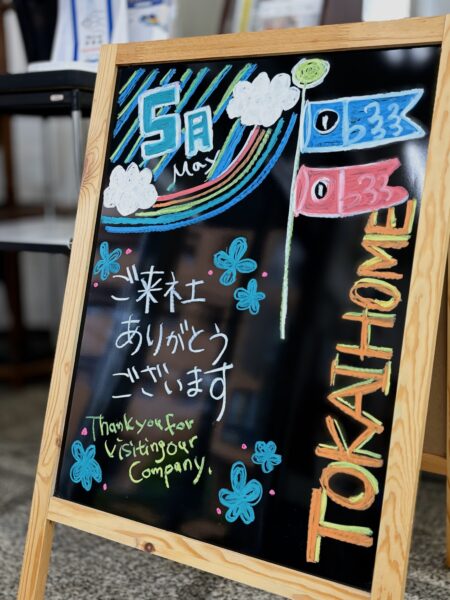 5月
May
ご来社
ありがとう
ございます
Thank you for
visiting our
Company.
TOKAIHOME